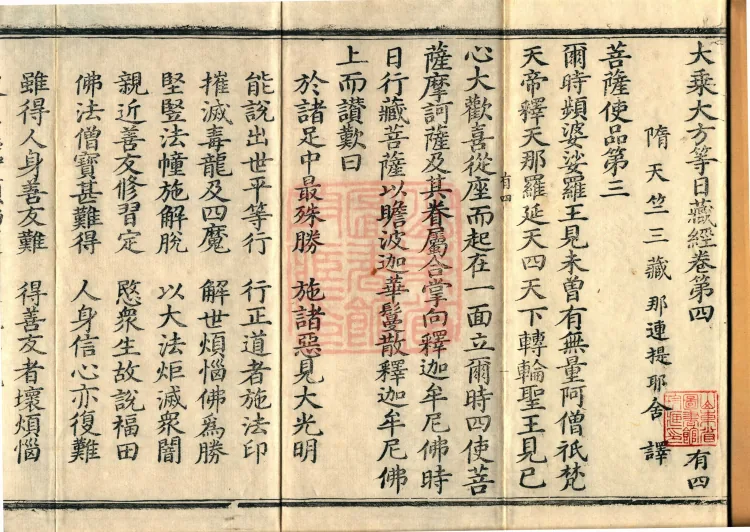 大乘大方等日藏經卷第四
有四
隋天竺三藏那連提耶舍 譯
菩薩使品第三
爾時頻婆娑羅王見未曾有無量阿僧祇梵
天帝釋天那羅延天四天下轉輪聖王見已
有四
心大歡喜從座而起在一面立爾時四使菩
薩摩訶薩及其眷屬合掌向釋迦牟尼佛時
日行藏菩薩以瞻波迦華鬘散釋迦牟尼佛
上而讃歎曰
於諸足中最殊勝 施諸惡見大光明
能說出世平等行 行正道者施法印
摧滅毒龍及四魔 解世煩惱佛爲勝
堅竪法幢施解脫 以大法炬滅衆闇
親近善友修習定 愍衆生故說福田
佛法僧寶甚難得 人身信心亦復難
雖得人身善友難 得善友者壞煩惱